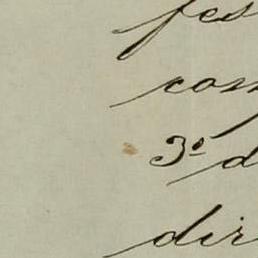 fes
com
3º d
dir